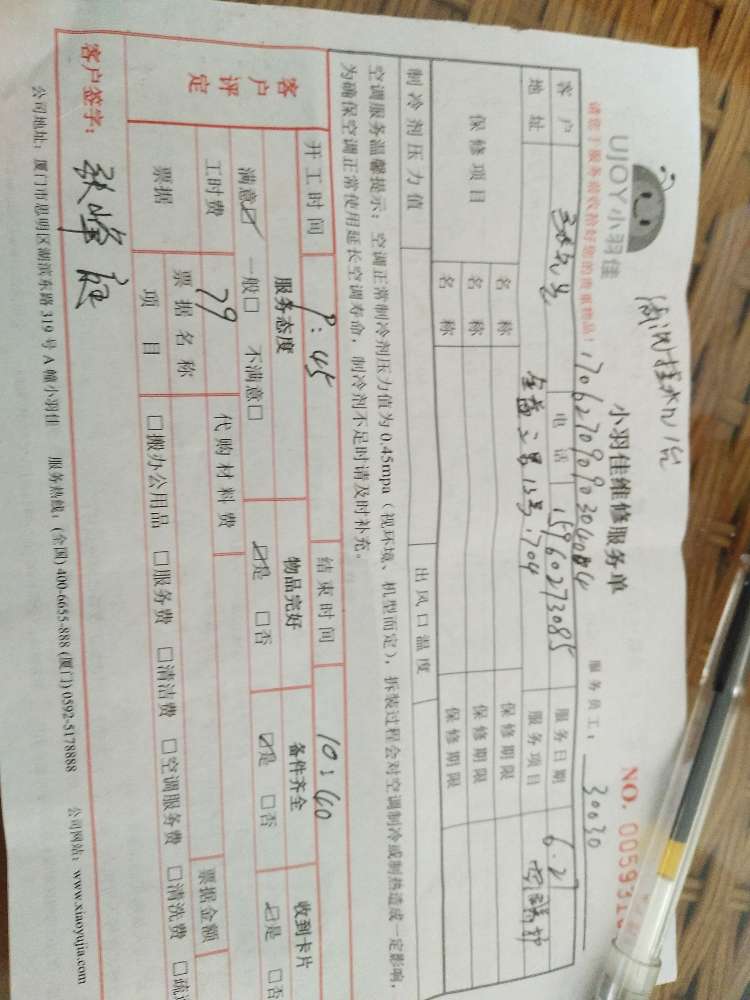 UJOY小羽佳
小羽佳维修服务单
NO. 005931
请您于服务前收拾好您的贵重物品!
17062709090304084
服务员工: 30030
客户
电话 15960273085
服务日期 6.27
地址
13号.1704
服务项目
保修项目
名称 保修期限
名称 保修期限
名称 保修期限
制冷剂压力值 出风口温度
空调服务温馨提示:空调正常制冷剂压力值为0.45mpa(视环境、机型而定),拆装过程会对空调制冷或制热造成一定影响,
为确保空调正常使用延长空调寿命,制冷剂不足时请及时补充。
开工时间 9:45 结束时间 10:40
客户评定
服务态度 物品完好 备件齐全 收到卡片
满意☑ 一般□ 不满意□ ☑是 □否 ☑是 □否 ☑是 □否
工时费 79 代购材料费 票据金额
票据
票据名称
项目
□搬办公用品 □服务费 □清洁费 □空调服务费 □清洗费 □疏
客户签字:
公司地址:厦门市思明区湖滨东路319号A幢小羽佳 服务热线:(全国)400-6655-888 (厦门)0592-5178888 公司网站:www.xiaoyujia.com